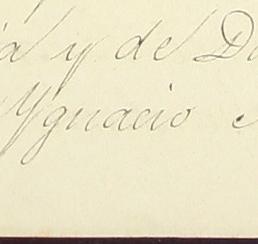 a y de D
Ygnacio